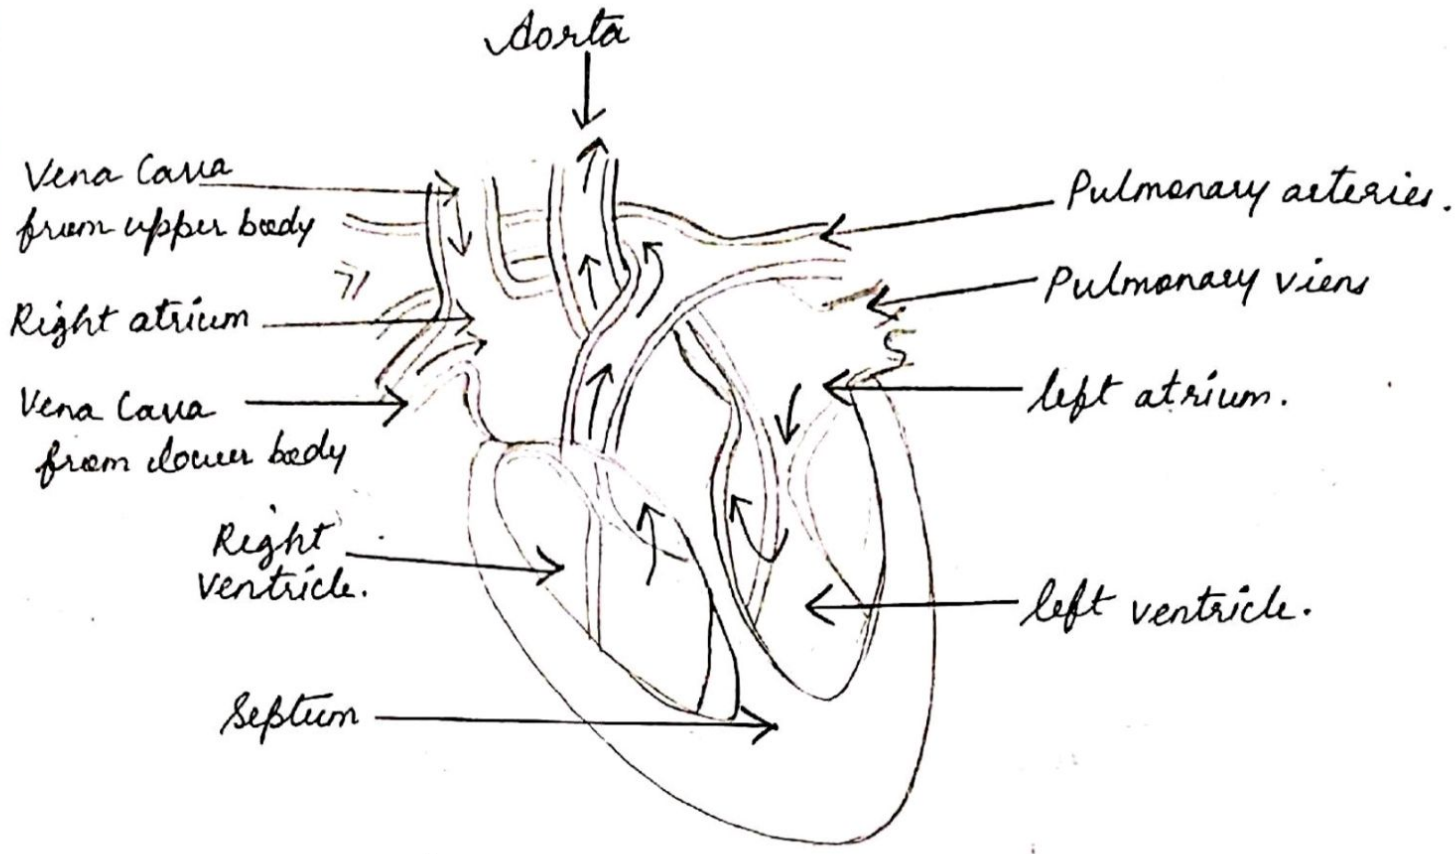 Aorta
Vena Cava
from upper body
Right atrium
Vena Cava
from lower body
Right
ventricle.
Septum
Pulmonary arteries.
Pulmonary viens
left atrium.
left ventricle.